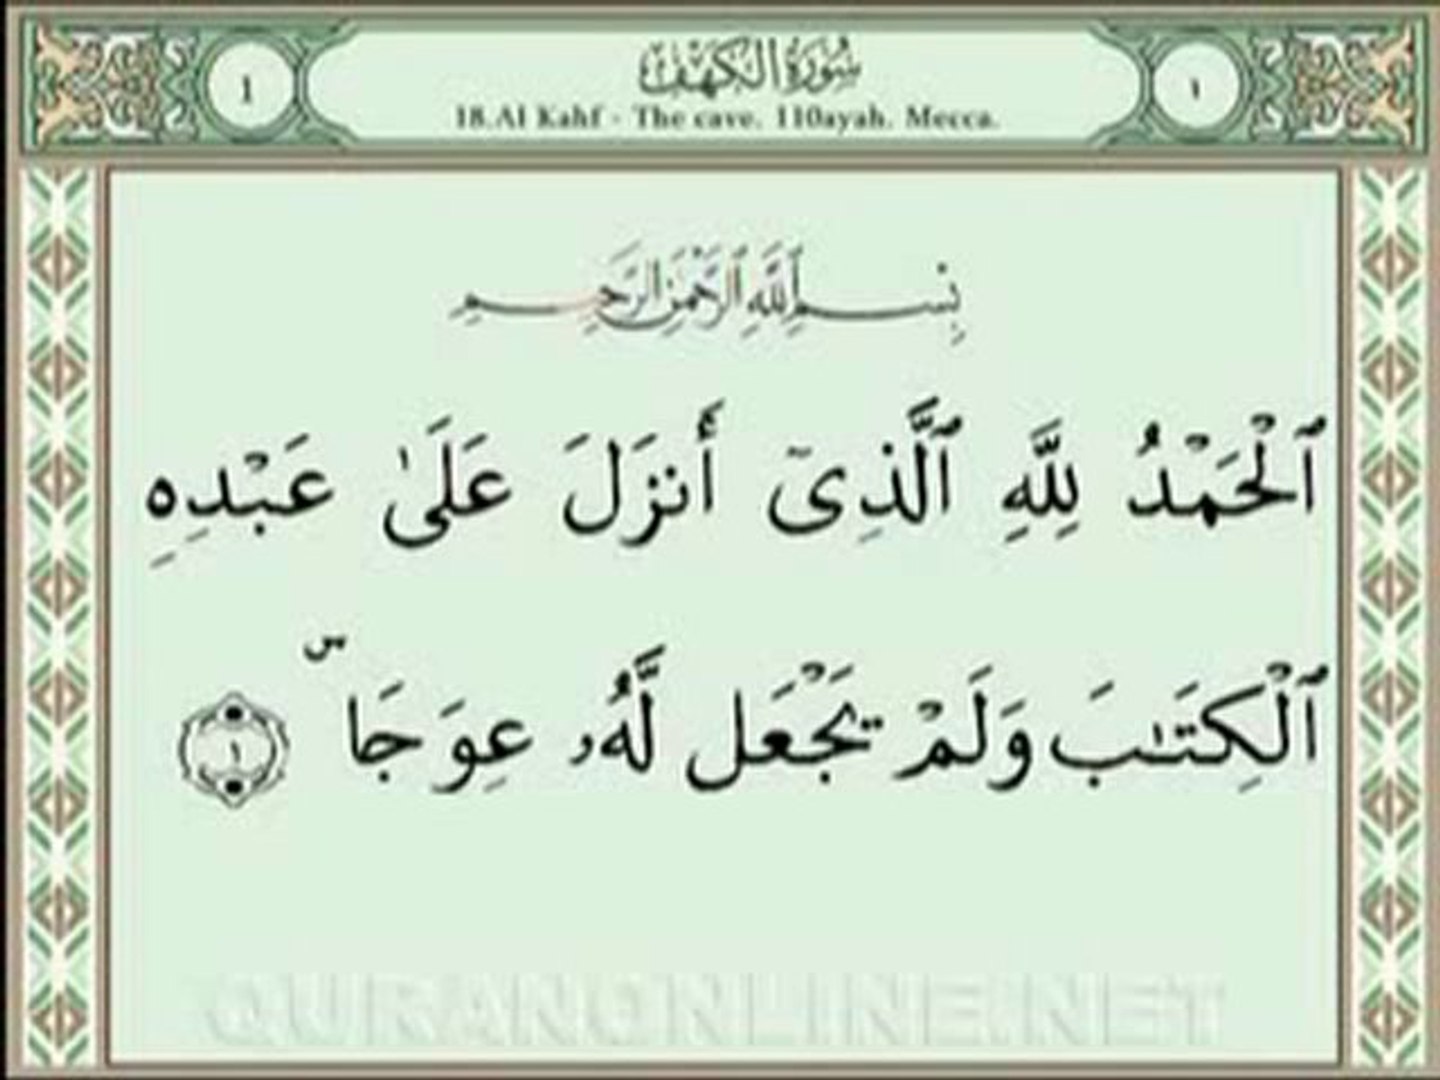 1 سُورَةُ الكَهْفِ ١
18.Al Kahf - The cave. 110ayah. Mecca.
بِسْمِ ٱللَّهِ ٱلرَّحْمَٰنِ ٱلرَّحِيمِ
ٱلْحَمْدُ لِلَّهِ ٱلَّذِىٓ أَنزَلَ عَلَىٰ عَبْدِهِ
ٱلْكِتَـٰبَ وَلَمْ يَجْعَل لَّهُۥ عِوَجَاۜ ١
QURANONLINE.NET